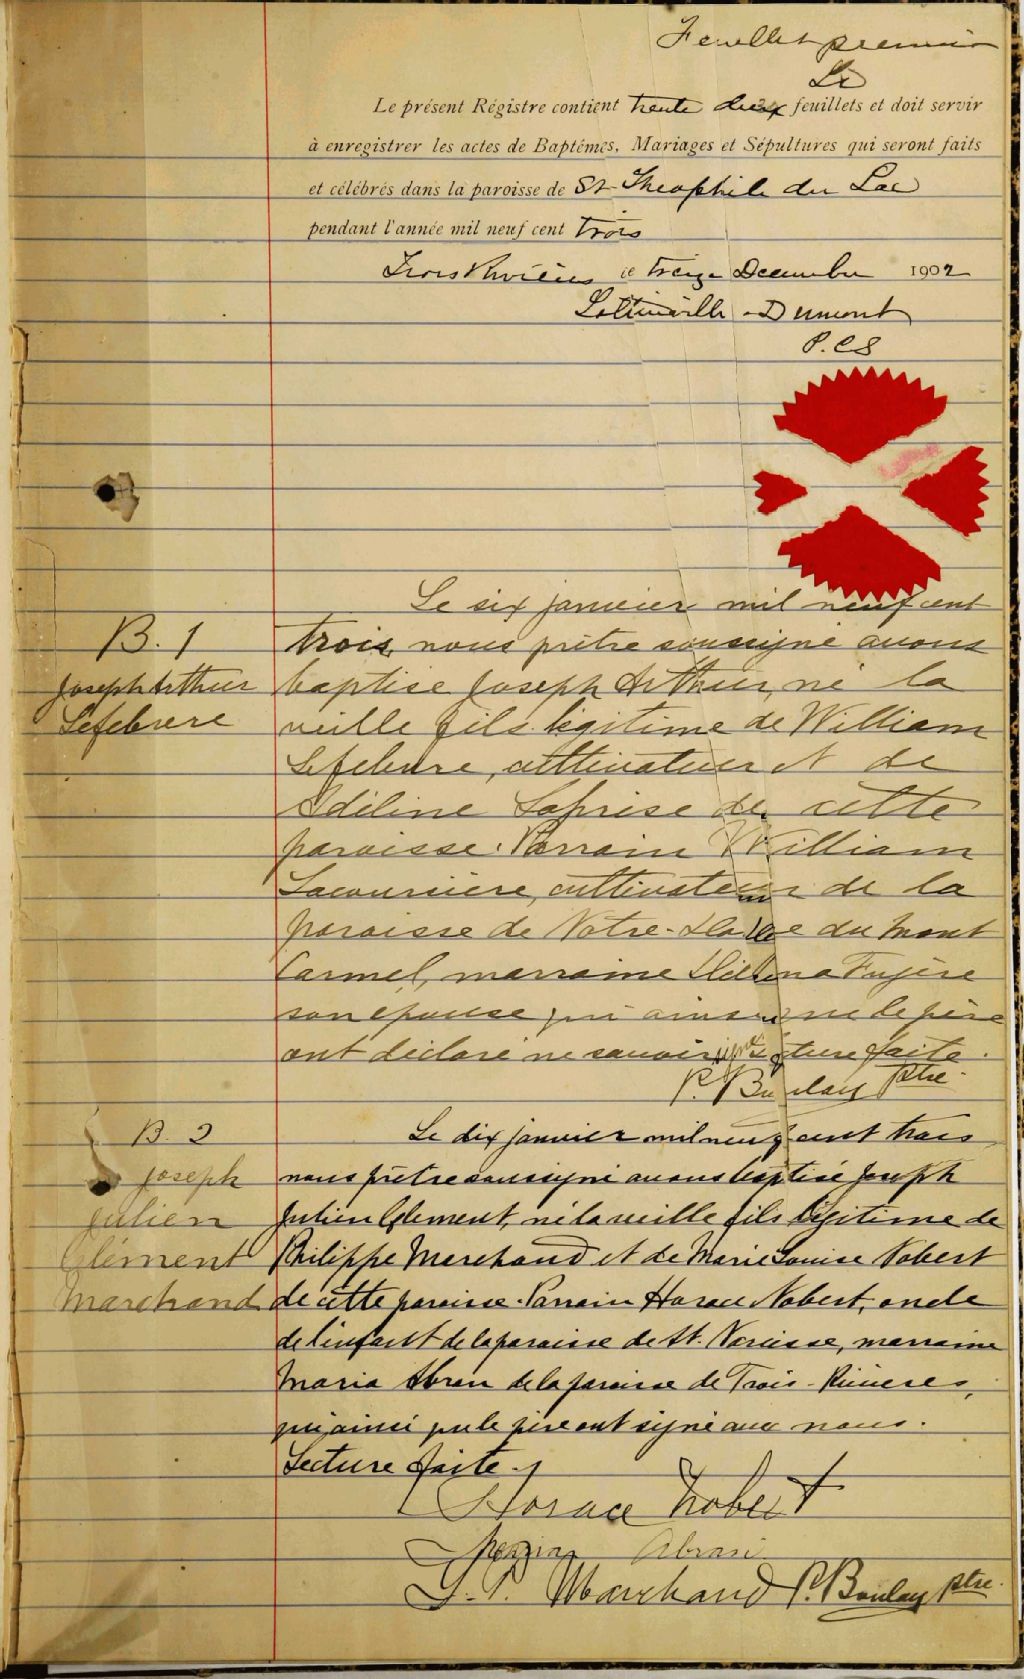 Feuillet premier
Ld
Le présent Régistre contient trente deux feuillets et doit servir
à enregistrer les actes de Baptêmes, Mariages et Sépultures qui seront faits
et célébrés dans la paroisse de St-Theophile du Lac
pendant l'année mil neuf cent trois
Trois Rivières ce treize Decembre 1902
Lottinville - Dumont
P.CS
Le six janvier mil neuf cent
B. 1
trois, nous prêtre soussigné avons
Joseph Arthur
baptisé Joseph Arthur, né la
Lefebvre
veille fils légitime de William
Lefebvre, cultivateur et de
Adéline Laprise de cette
paroisse. Parrain William
Lacoursière, cultivateur de la
paroisse de Notre-Dame du Mont
Carmel, marraine Fugère
son épouse qui ainsi que le père
ont déclaré ne savoir signer. Lecture faite.
P. Boulay Ptre.
B. 2
Le dix janvier mil neuf cent trois
Joseph
nous prêtre soussigné avons baptisé Joseph
Julien
Julien Clément, né la veille fils légitime de
Clément
Philippe Marchand et de Marie Louise Nobert
Marchand
de cette paroisse. Parrain Horace Nobert, oncle
de l'enfant de la paroisse de St. Narcisse, marraine
Maria Abran de la paroisse de Trois-Rivières,
qui ainsi que le père ont signé avec nous.
Lecture faite.
Horace Nobert
Maria Abran
J. P. Marchand P. Boulay Ptre.